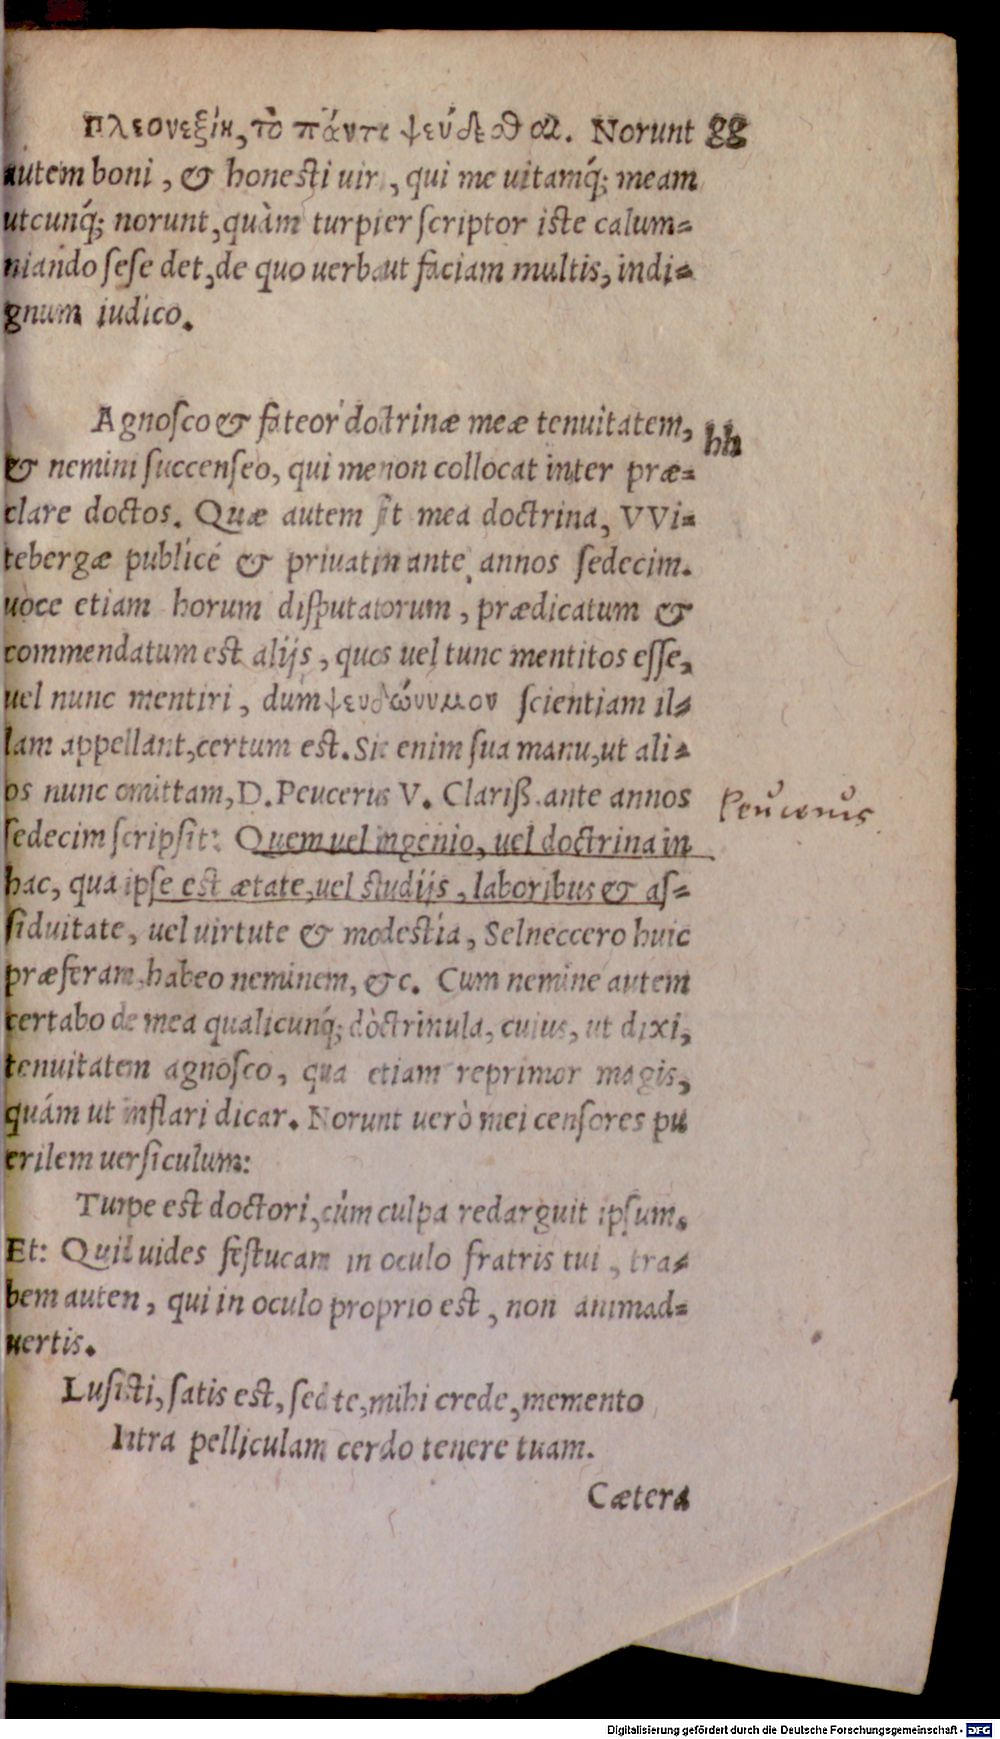 Πλεονεξίη, τὸ πάντε ψεύδεσθαι. Norunt gg
autem boni, & honesti uiri, qui me uitamq́; meam
utcunq́; norunt, quàm turpier ſcriptor iſte calum=
niando ſeſe det, de quo uerba ut faciam multis, indi=
gnum iudico.
Agnoſco & fateor doctrinæ meæ tenuitatem, hh
& nemini ſuccenſeo, qui me non collocat inter præ=
clare doctos. Quæ autem ſit mea doctrina, VVi=
tebergæ publicè & priuatim ante annos ſedecim.
uoce etiam horum diſputatorum, prædicatum &
commendatum est alijs, quos uel tunc mentitos eſſe,
uel nunc mentiri, dum ψευδώνυμον ſcientiam il=
lam appellant, certum est. Sic enim ſua manu, ut ali=
os nunc omittam, D. Peucerus V. Clariß. ante annos
ſedecim ſcripſit: Quem uel ingenio, uel doctrina in
hac, qua ipſe est ætate, uel ſtudijs, laboribus & aſ=
ſiduitate, uel uirtute & modestia, Selneccero huic
præferam, habeo neminem, &c. Cum nemine autem
certabo de mea qualicunq́; doctrinula, cuius, ut dixi,
tenuitatem agnoſco, qua etiam reprimor magis,
quám ut inflari dicar. Norunt uerò mei cenſores pu
erilem uerſiculum:
Turpe est doctori, cùm culpa redarguit ipſum.
Et: Quid uides feſtucam in oculo fratris tui, tra=
bem autem, qui in oculo proprio est, non animad=
uertis.
Luſiſti, ſatis est, ſed te, mihi crede, memento
Intra pelliculam cerdo tenere tuam.
Cætera
Digitalisierung gefördert durch die Deutsche Forschungsgemeinschaft - DFG